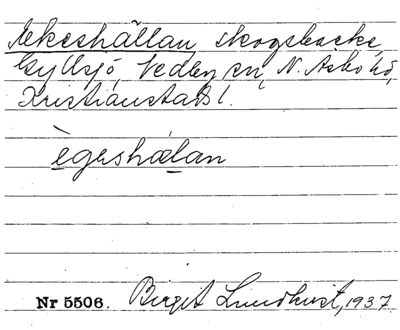 Ekeshällan skogsbacke,
Gyllsjö, Vedby sn, N. Åsbo hd,
Kristianstads l.
ègeshälan
Nr 5506. Birgit Lundkvist, 1937.